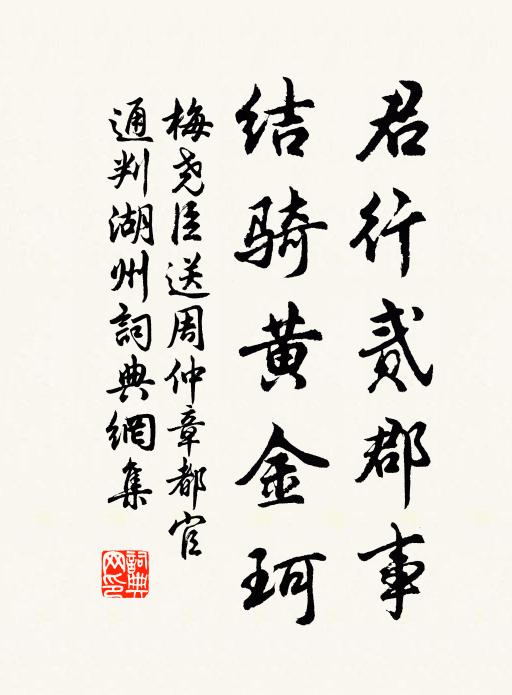 君行贰郡事
结骑黄金珂
梅尧臣送周仲章都官
通判湖州詞典網集
詞典
网印